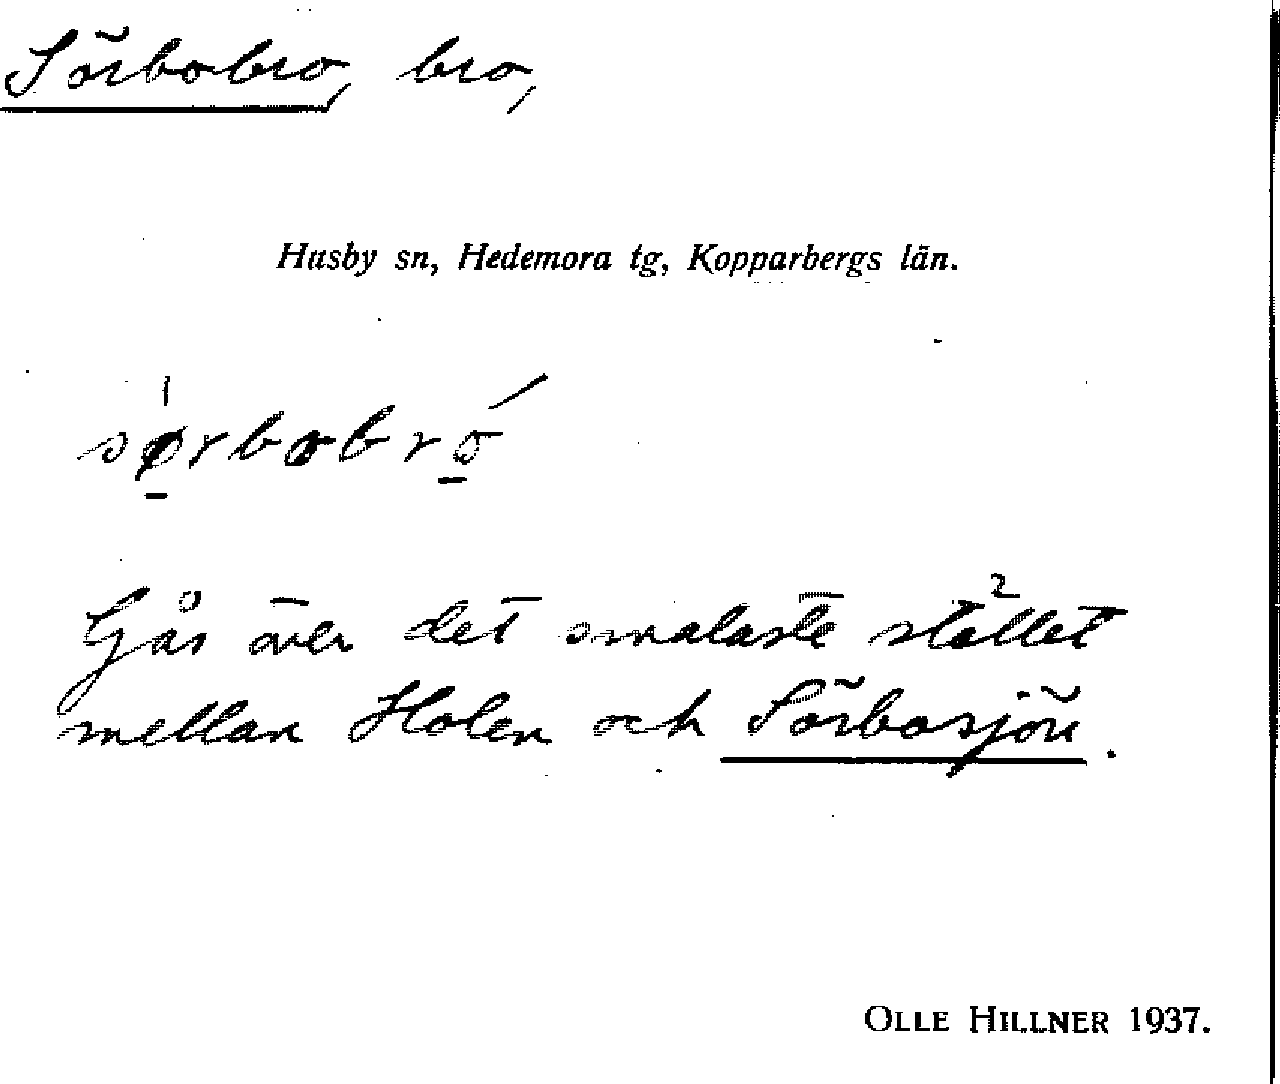 Sörbobro, bro,
Husby sn, Hedemora tg, Kopparbergs län.
sørbobró
Går över det smalaste stället
mellan Holen och Sörbosjön.
OLLE HILLNER 1937.